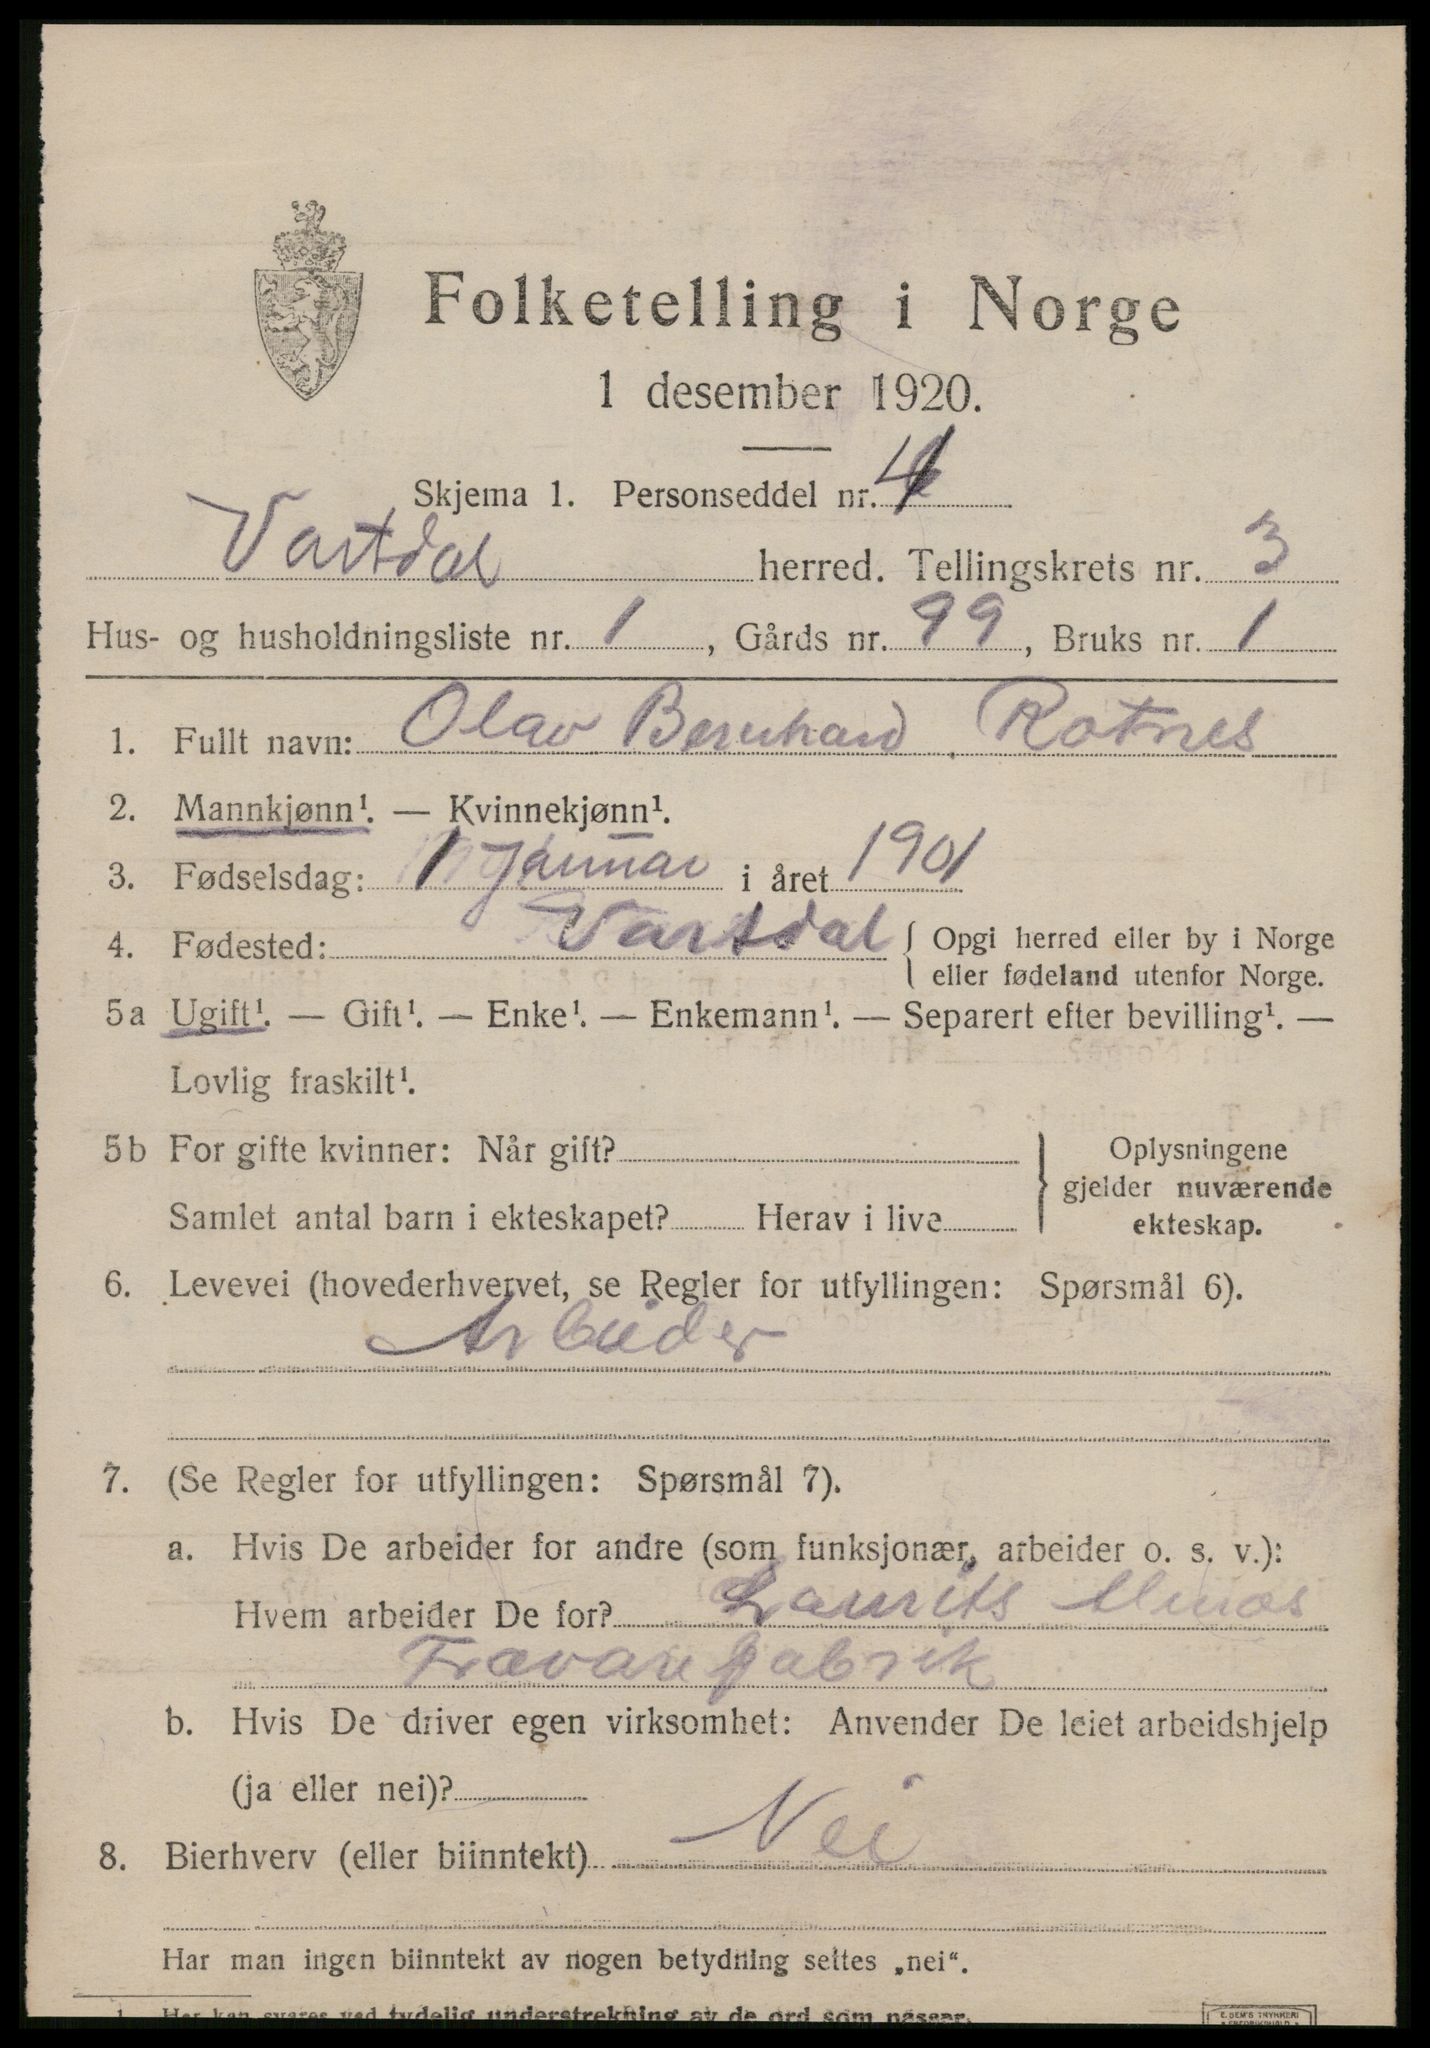 Folketelling i Norge
1 desember 1920.
Skjema 1. Personseddel nr. 4
Vartdal herred. Tellingskrets nr. 3
Hus- og husholdningsliste nr. 1, Gårds nr. 99, Bruks nr. 1
1. Fullt navn: Olav Bernhard Rotnes
2. Mannkjønn¹. — Kvinnekjønn¹.
3. Fødselsdag: 1 Januar i året 1901
4. Fødested: Vartdal { Opgi herred eller by i Norge
eller fødeland utenfor Norge.
5a Ugift¹. — Gift¹. — Enke¹. — Enkemann¹. — Separert efter bevilling¹. —
Lovlig fraskilt¹.
5b For gifte kvinner: Når gift? Oplysningene
gjelder nuværende
Samlet antal barn i ekteskapet? Herav i live ekteskap.
6. Levevei (hovederhvervet, se Regler for utfyllingen: Spørsmål 6).
Arbeider
7. (Se Regler for utfyllingen: Spørsmål 7).
a. Hvis De arbeider for andre (som funksjonær, arbeider o. s. v.):
Hvem arbeider De for? Laurits
Trævarefabrik
b. Hvis De driver egen virksomhet: Anvender De leiet arbeidshjelp
(ja eller nei)?
8. Bierhverv (eller biinntekt) Nei
Har man ingen biinntekt av nogen betydning settes „nei“.
1 Her kan svares ved tydelig understrekning av de ord som passer.
E. SEM'S TRYKKERI
FREDRIKSHALD